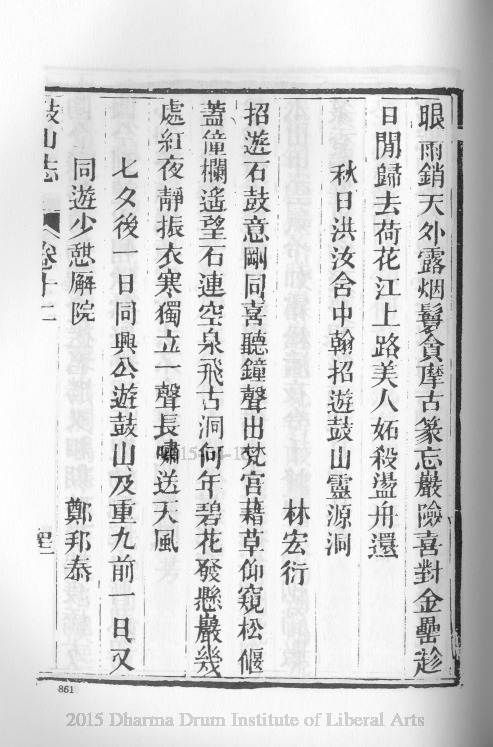 眼雨銷天外露烟鬟貪摩古篆忘巖險喜對金罍趁
日閒歸去荷花江上路美人妬殺盪舟還
秋日洪汝舍中翰招遊鼓山靈源洞
林宏衍
招遊石鼓意剛同喜聽鐘聲出梵宮藉草仰窺松偃
蓋憧欄遙望石連空泉飛古洞何年碧花發懸巖幾
處紅夜靜振衣寒獨立一聲長嘯送天風
七夕後一日同興公遊鼓山及重九前一日又
同遊少憇廨院
鄭邦泰
鼓山志
卷十二
861
2015 Dharma Drum Institute of Liberal Arts